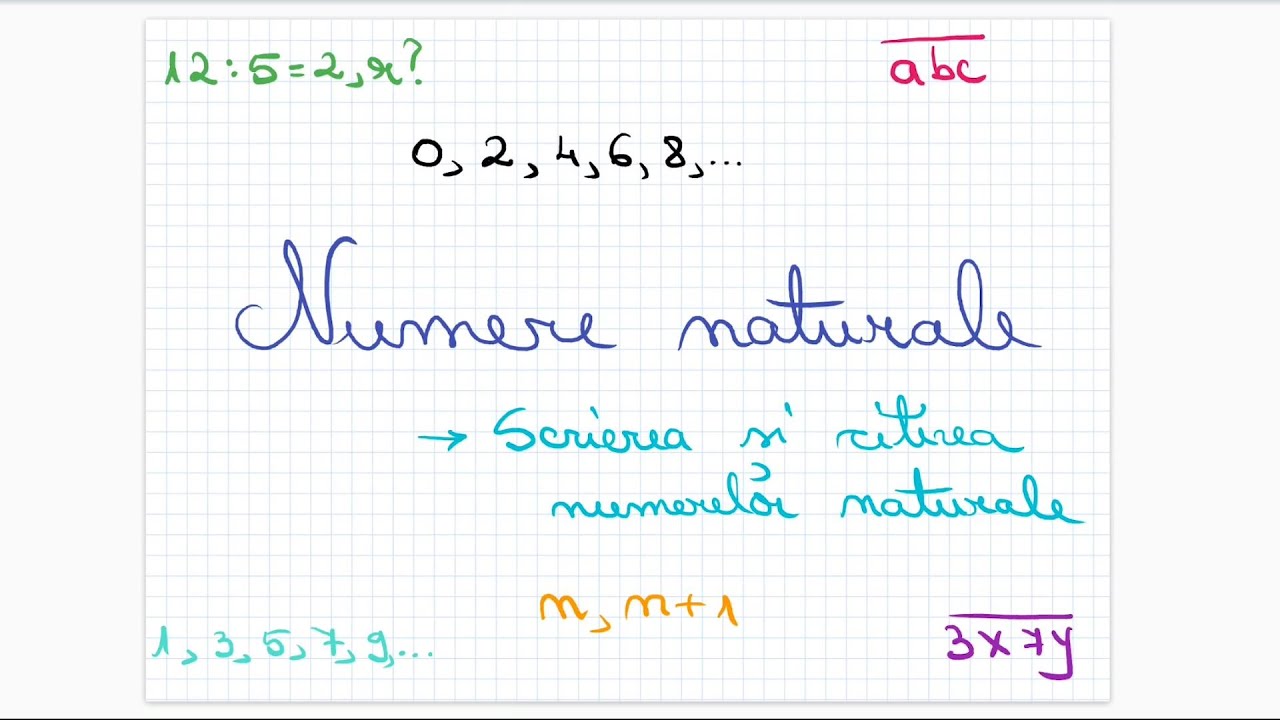 12:5=2,r?
a̅b̅c̅
0, 2, 4, 6, 8, ...
Numere naturale
→ Scrierea și citirea
numerelor naturale
n, n+1
1, 3, 5, 7, 9, ...
3̅x̅7̅y̅